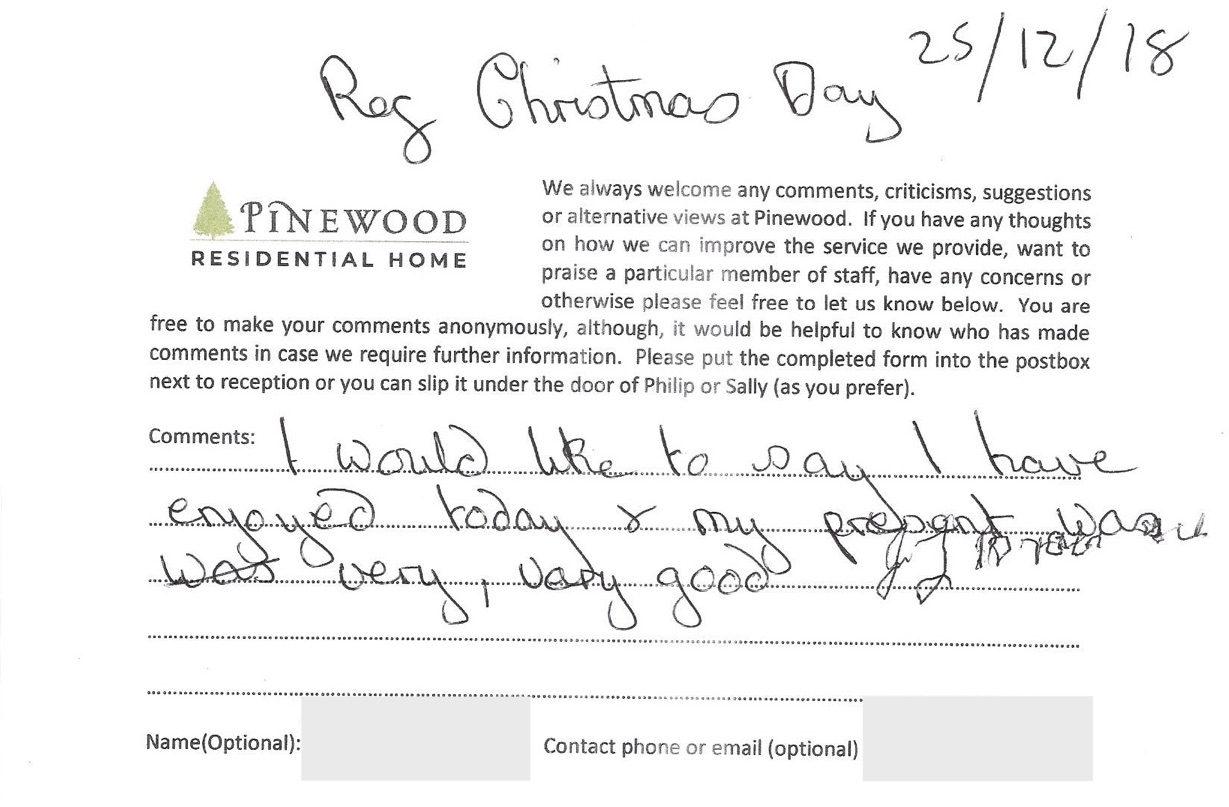 25/12/18
Reg Christmas Day
PINEWOOD
RESIDENTIAL HOME
We always welcome any comments, criticisms, suggestions
or alternative views at Pinewood. If you have any thoughts
on how we can improve the service we provide, want to
praise a particular member of staff, have any concerns or
otherwise please feel free to let us know below. You are
free to make your comments anonymously, although, it would be helpful to know who has made
comments in case we require further information. Please put the completed form into the postbox
next to reception or you can slip it under the door of Philip or Sally (as you prefer).
Comments: I would like to say I have
enjoyed today & my was
was very, very good
Name(Optional):
Contact phone or email (optional)